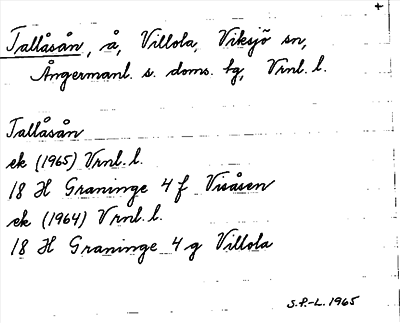 +
Tallåsån, å, Villola, Viksjö sn,
Ångermanl. s. doms. tg, Vrnl. l.
Tallåsån
ek (1965) Vrnl. l.
18 H Graninge 4 f Visåsen
ek (1964) Vrnl. l.
18 H Graninge 4 g Villola
S.P.-L. 1965